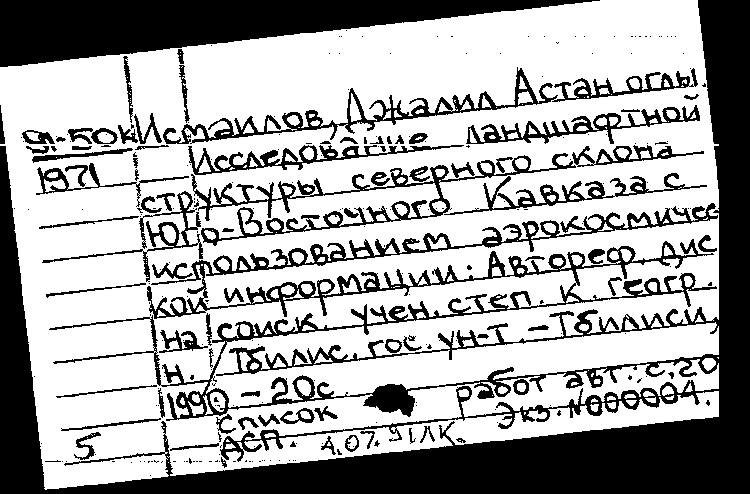 91-50к Исмаилов, Джалил Астан оглы.
1971 Исследование ландшафтной
структуры северного склона
Юго-Восточного Кавказа с
использованием аэрокосмичес
кой информации: Автореф. дис
на соиск. учен. степ. к. геогр.
н. / Тбилис. гос. ун-т. - Тбилиси,
1990 - 20с
Список работ авт.: с. 20
АСП. Экз. N000004.
5 4.07.91 ЛК.